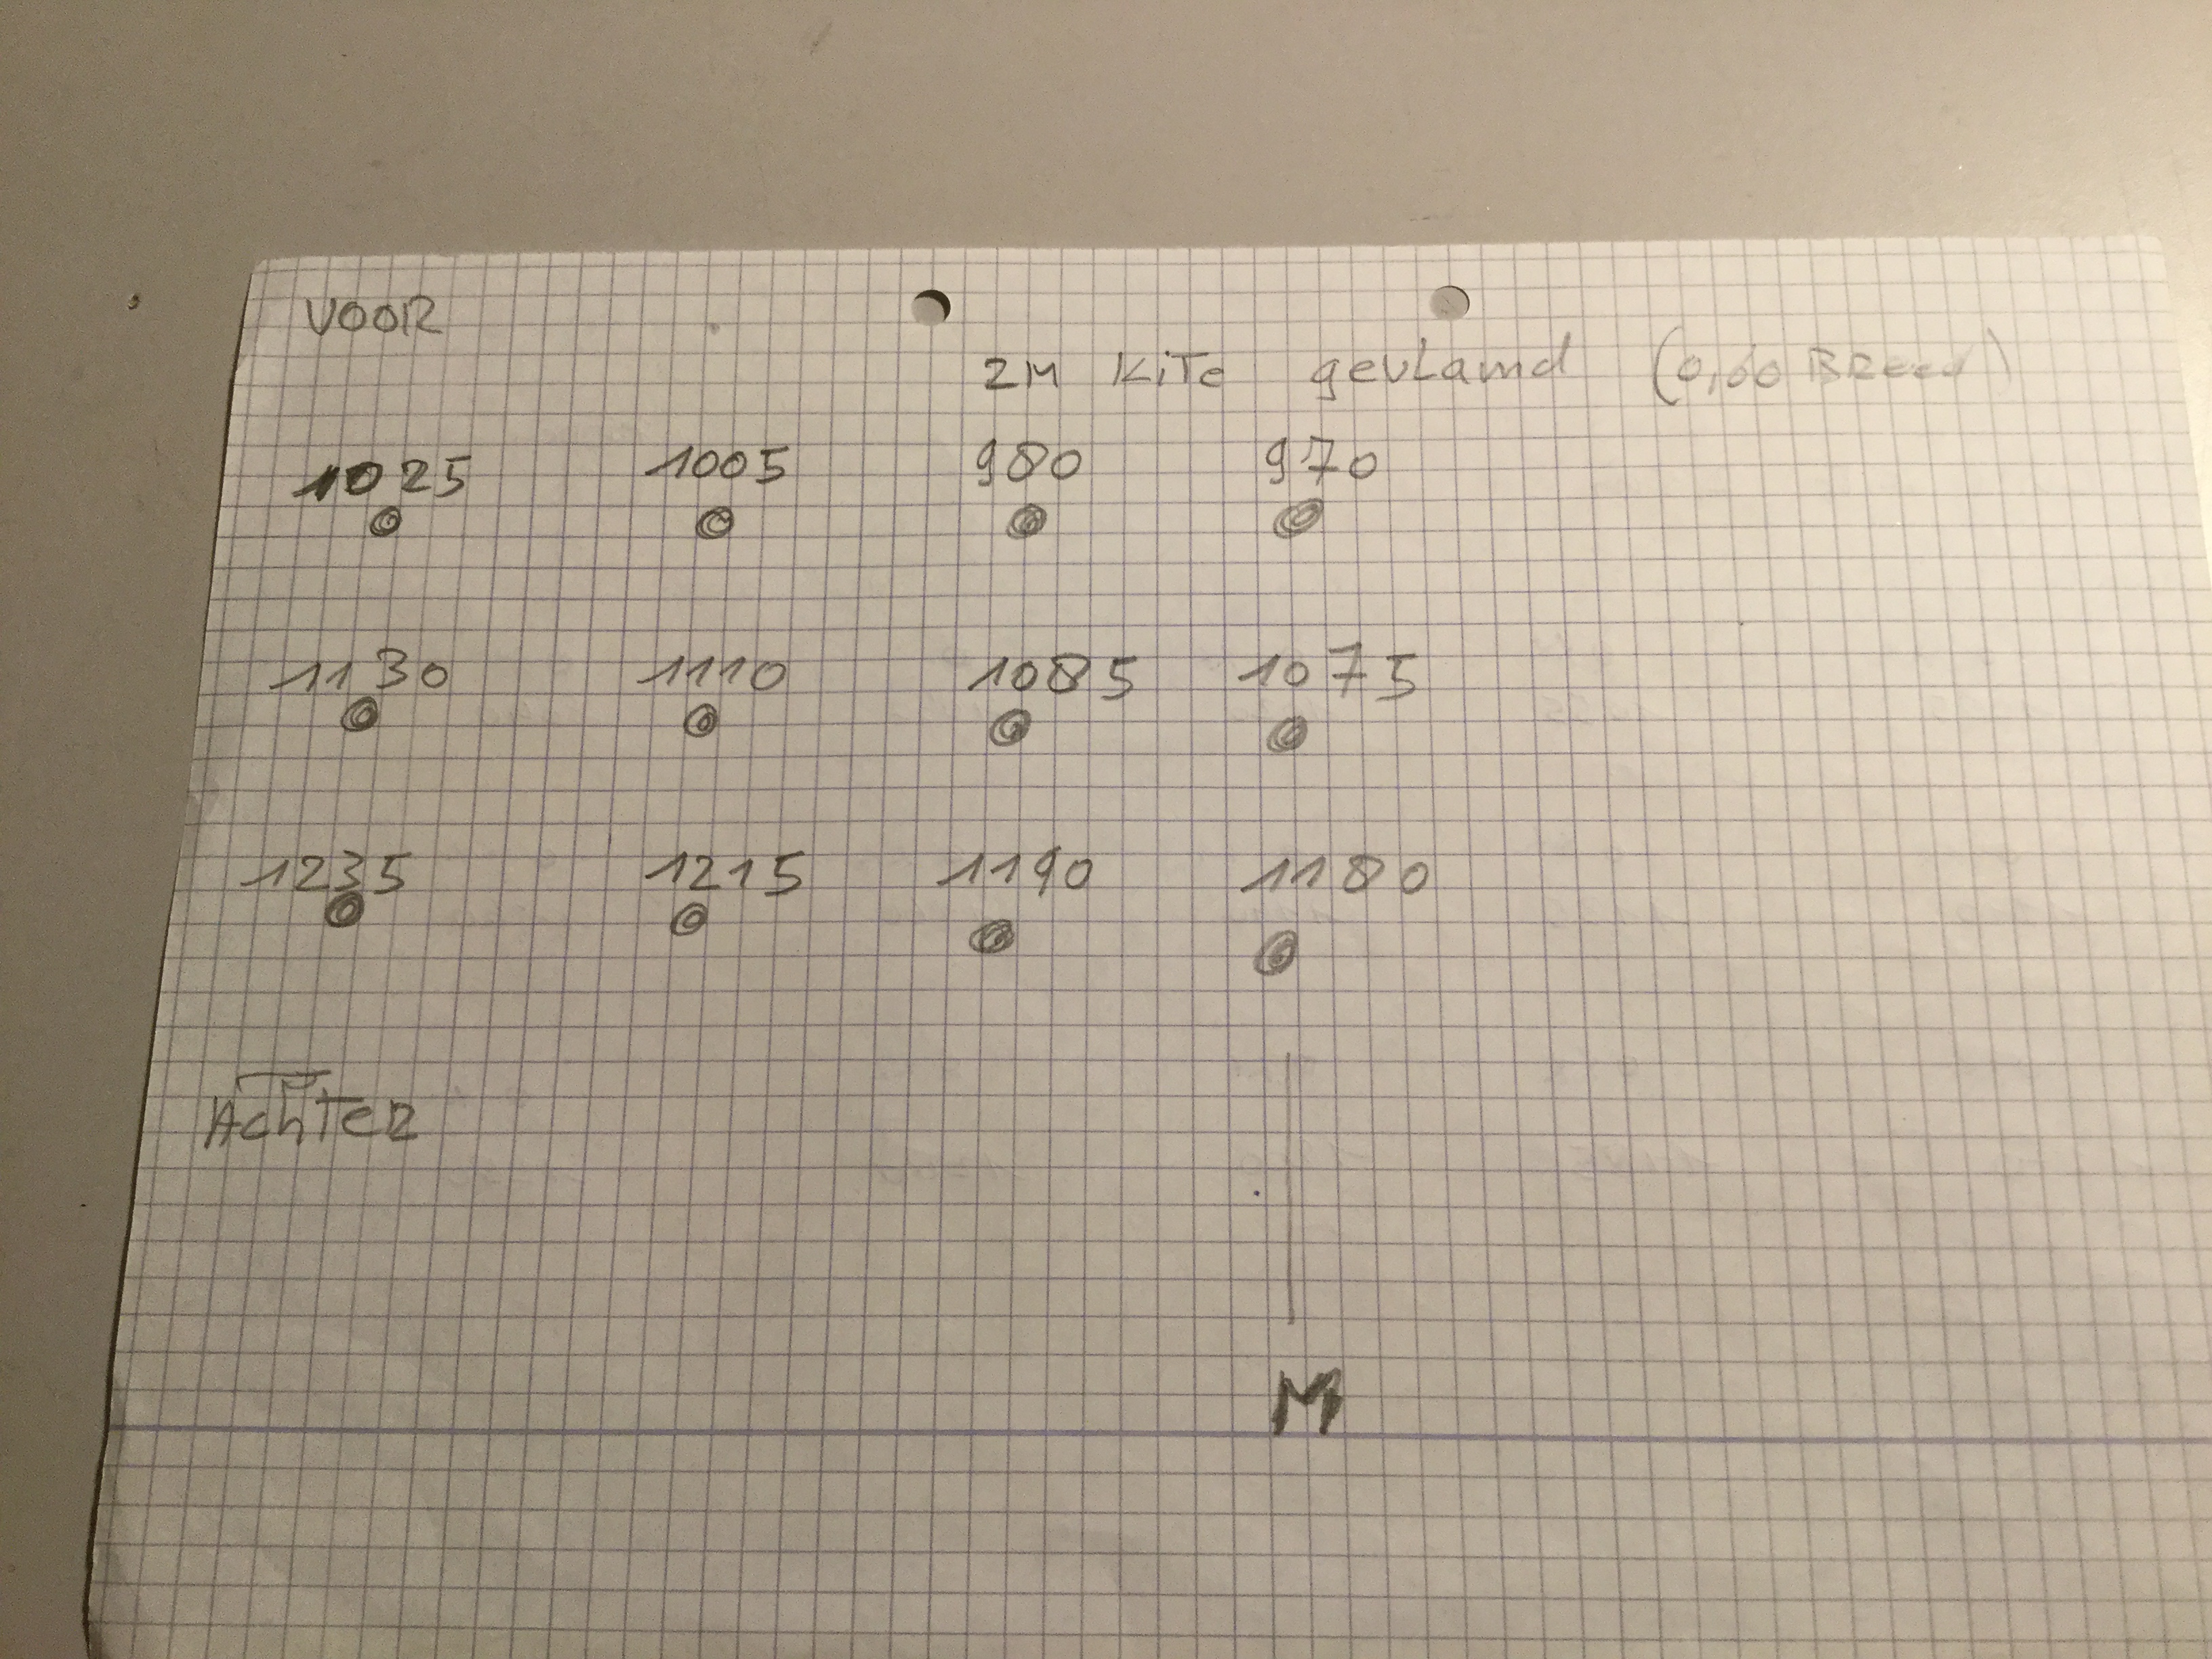 VOOR
2M KiTe gevLamd (0,60 BReed)
1025 1005 980 970
1130 1110 1085 1075
1235 1215 1190 1180
AchTeR
M